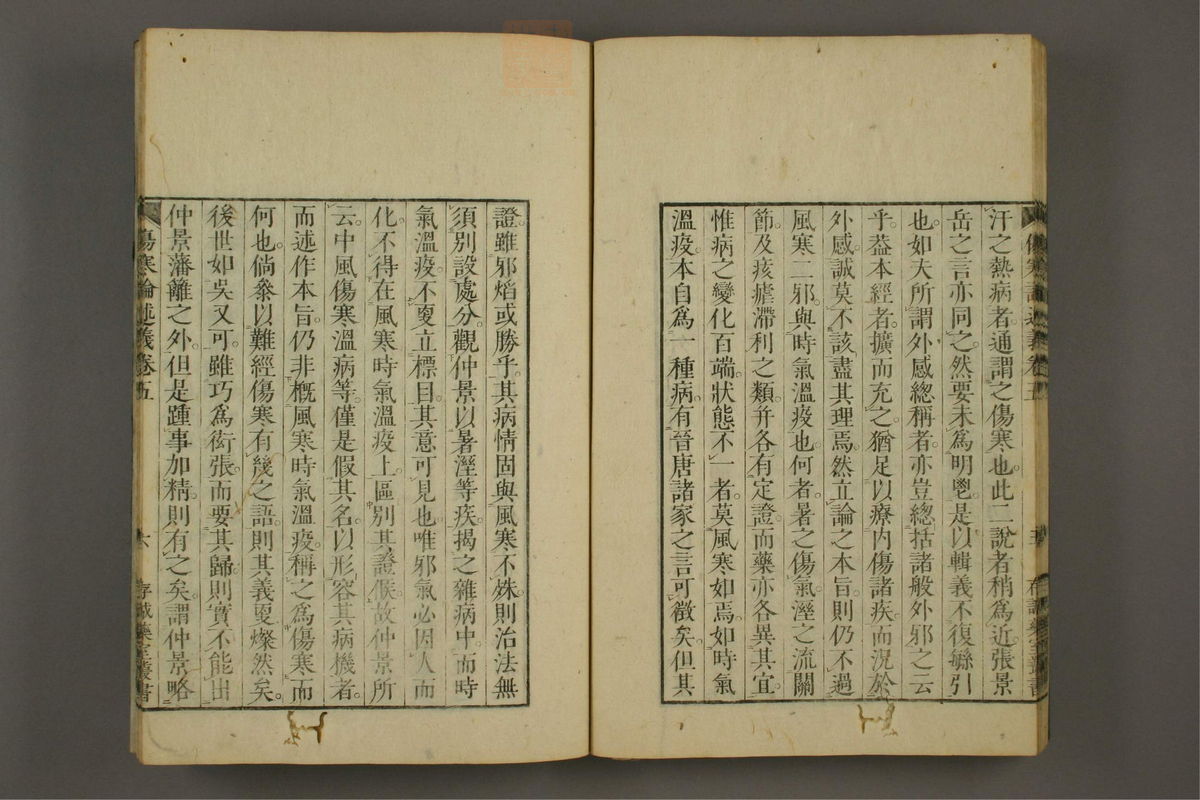 汗之熱病者通謂之傷寒也此二說者稍爲近張景
岳之言亦同之然要未爲明鬯是以輯義不復繇引
也如夫所謂外感總稱者亦豈總括諸般外邪之云
乎葢本經者擴而充之猶足以療內傷諸疾而況於
外感誠莫不該盡其理焉然立論之本旨則仍不過
風寒二邪與時氣溫疫也何者暑之傷氣溼之流關
節及痎瘧滯利之類幷各有定證而藥亦各異其宜
惟病之變化百端狀態不一者莫風寒如焉如時氣
溫疫本自爲一種病有晉唐諸家之言可徵矣但其
傷寒論述義卷五
五
存誠藥室叢書
證雖邪焰或勝乎其病情固與風寒不殊則治法無
須別設處分觀仲景以暑溼等疾揭之雜病中而時
氣溫疫不夐立標目其意可見也唯邪氣必因人而
化不得在風寒時氣溫疫上區別其證候故仲景所
云中風傷寒溫病等僅是假其名以形容其病機者
而述作本旨仍非概風寒時氣溫疫稱之爲傷寒而
何也倘叅以難經傷寒有幾之語則其義夐燦然矣
後世如吳又可雖巧爲衒張而要其歸則實不能出
仲景藩籬之外但是踵事加精則有之矣謂仲景略
傷寒論述義卷五
六
存誠藥室叢書